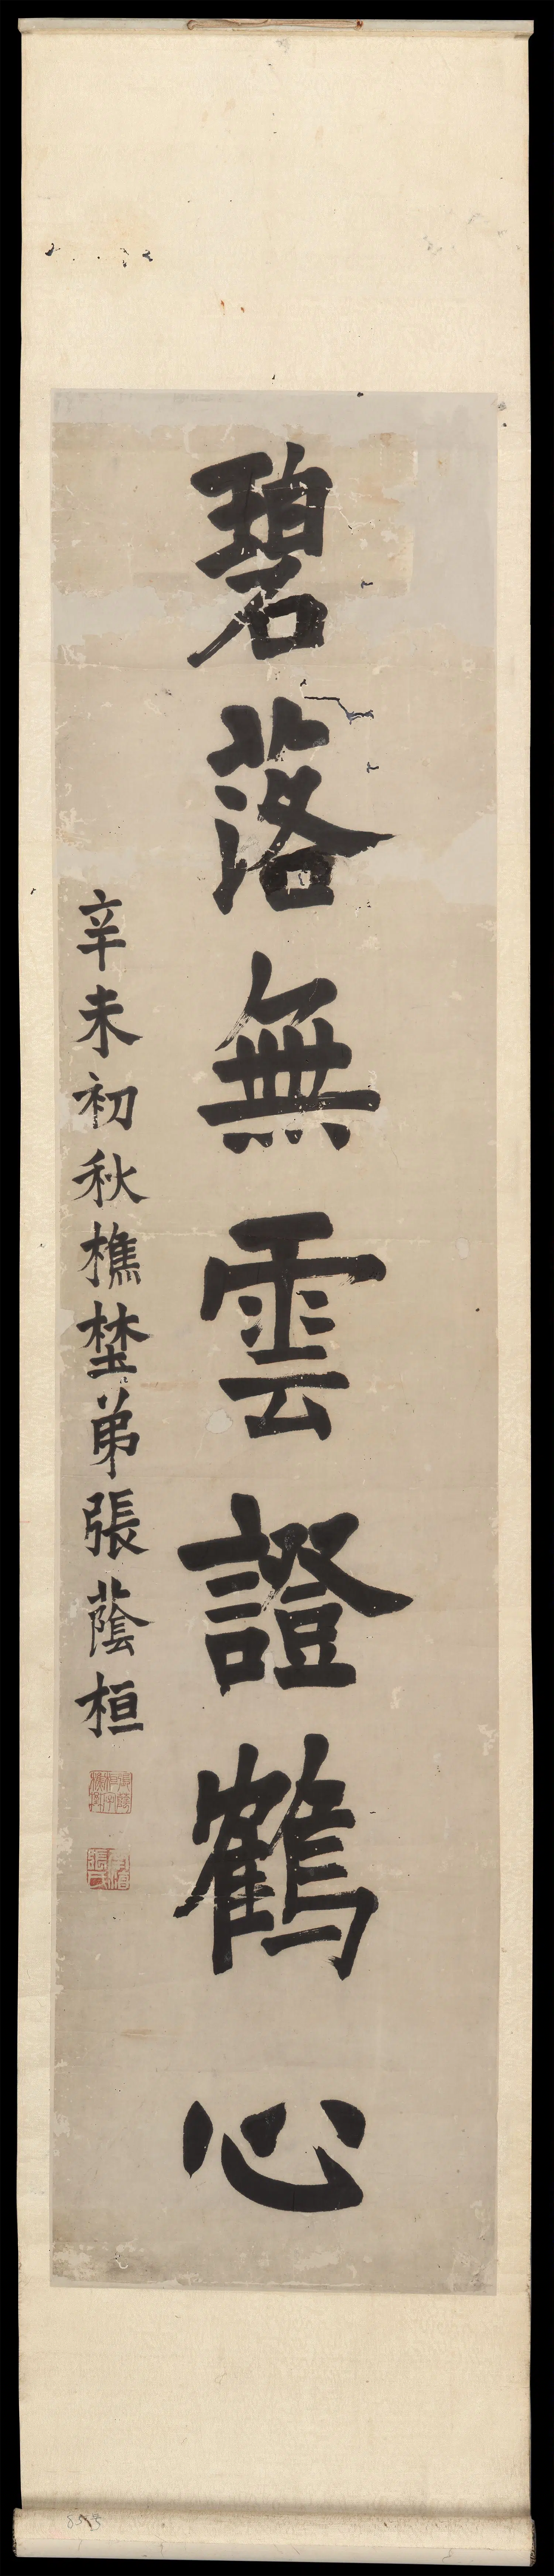 碧落無雲證鶴心
辛未初秋樵埜弟張蔭桓